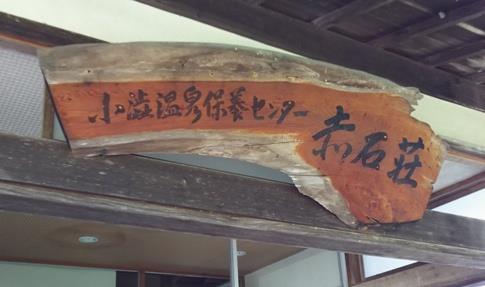 小渋温泉保養センター
赤石荘